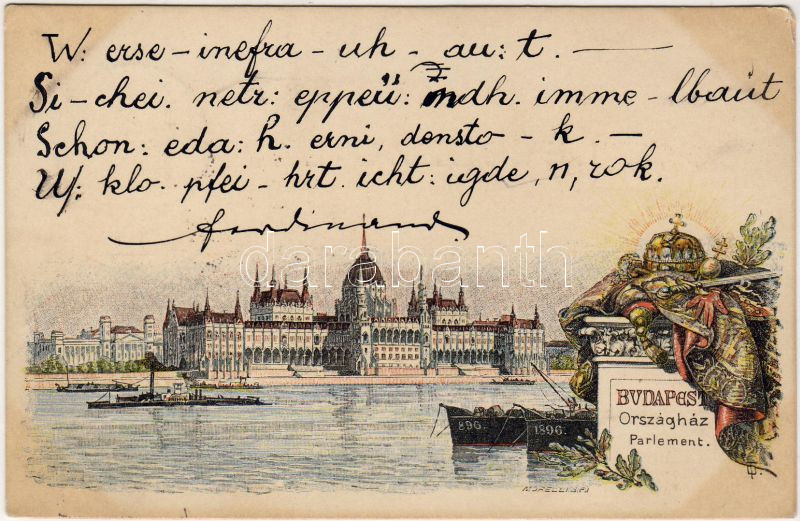 W: erse – inefra – uh – au: t. —
Si – chei. netr: eppeü: indh. imme – lbaut
Schon: eda: h. erni, densto – k. –
W: klo. pfei – hrt. icht: igde, n, rok.
Ferdinand.
darabanth
896
1896
BVDAPEST
Országház
Parlement.